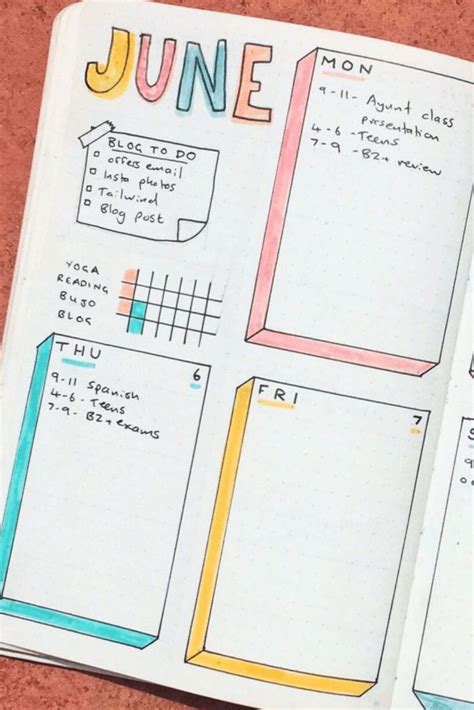 JUNE
MON
9-11- Ayunt class
presentation
4-6- Teens
7-9 -B2+ review
BLOG TO DO
offers email
Insta photos
Tailwind
Blog post
YOGA
READING
BUJO
BLOG
THU
6
9-11 Spanish
4-6- Teens
7-9- B2+ exams
FRI
7